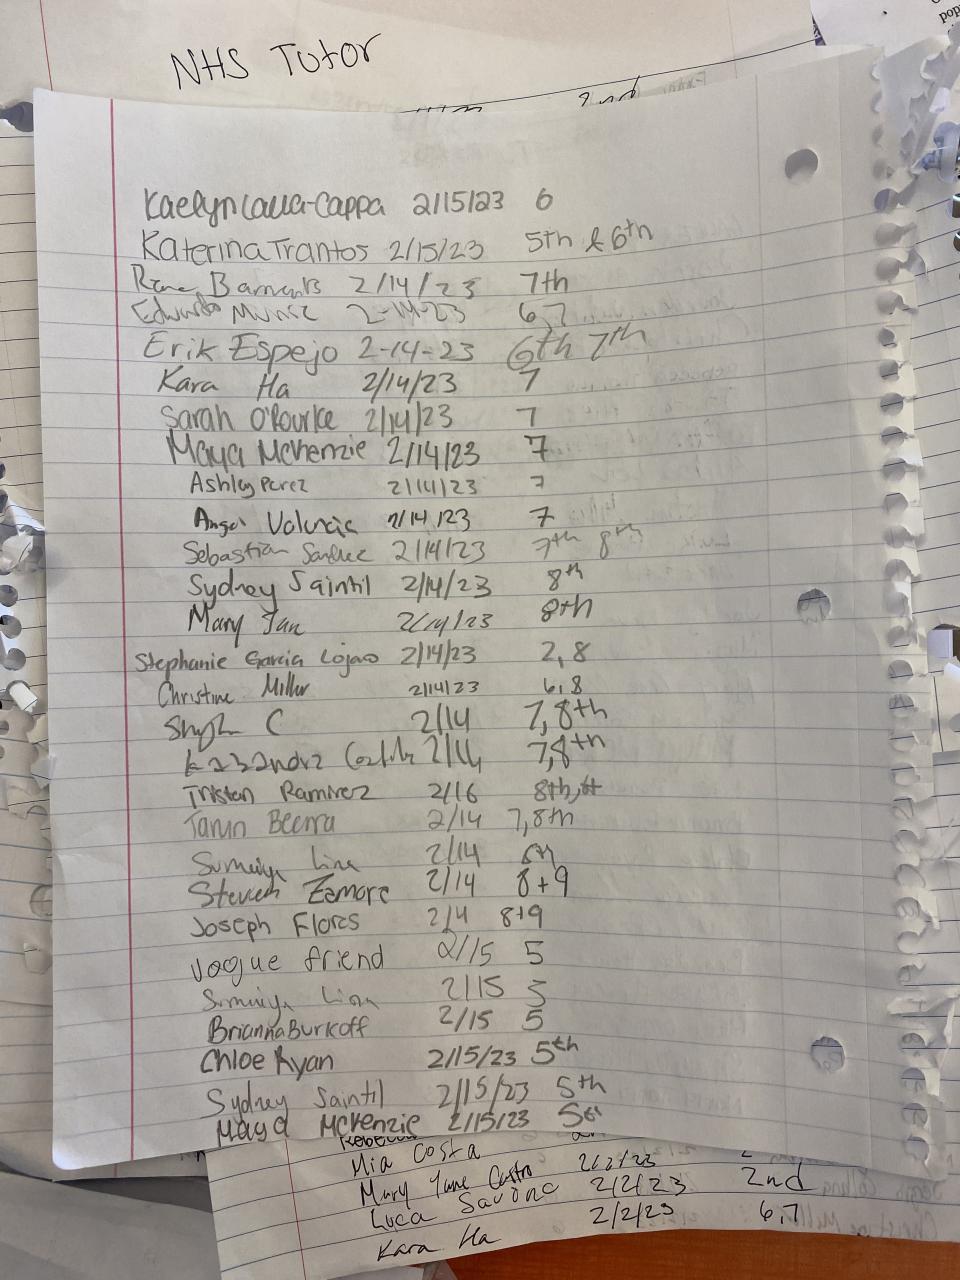 NHS Tutor
2nd
pop
Kaelyn Lalla-Cappa 2/15/23 6
Katerina Trantos 2/15/23 5th & 6th
2/14/23 7th
Eduardo Muniz 2-14-23 6,7
Erik Espejo 2-14-23 6th 7th
Kara Ha 2/14/23 7
Sarah O'Rourke 2/14/23 7
Maya McKenzie 2/14/23 7
Ashley Perez 2/14/23 7
Angel Valencia 2/14/23 7
Sebastian Sanchez 2/14/23 7th 8th
Sydney Saintil 2/14/23 8th
Mary Jan 2/14/23 8th
Stephanie Garcia Lojano 2/14/23 2,8
Christine Miller 2/14/23 6,8
C 2/14 7,8th
2/14 7,8th
Tristan Ramirez 2/16 8th,
Tarun Beerra 2/14 7,8th
Sumaiya Lina 2/14 8th
Steven Zamora 2/14 8+9
Joseph Flores 2/4 8+9
vogue friend 2/15 5
Sumaiya Lina 2/15 5
Brianna Burkoff 2/15 5
Chloe Ryan 2/15/23 5th
Sydney Saintil 2/15/23 5th
Maya McKenzie 2/15/23 5th
Mia Costa
Mary Jane Castro 2/2/23
Luca Savona 2/2/23 2nd
Kara Ha 2/2/23 6,7